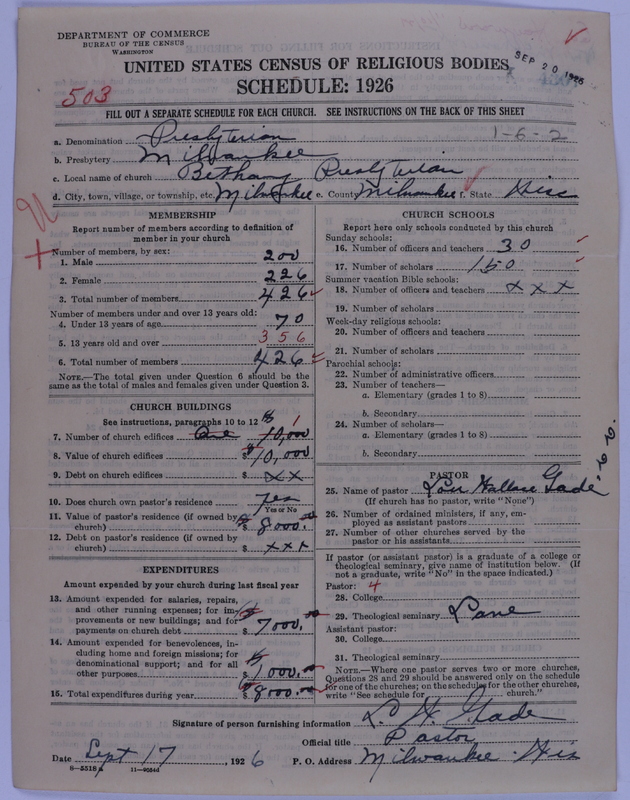 DEPARTMENT OF COMMERCE
BUREAU OF THE CENSUS
WASHINGTON
UNITED STATES CENSUS OF RELIGIOUS BODIES
SEP 20 1926
SCHEDULE: 1926
503
FILL OUT A SEPARATE SCHEDULE FOR EACH CHURCH. SEE INSTRUCTIONS ON THE BACK OF THIS SHEET
a. Denomination Presbyterian 1-6-2
b. Presbytery Milwaukee
c. Local name of church Bethany Presbyterian
d. City, town, village, or township, etc. Milwaukee e. County Milwaukee f. State Wisc
MEMBERSHIP
Report number of members according to definition of
member in your church
Number of members, by sex:
1. Male 200
2. Female 226
3. Total number of members 426
Number of members under and over 13 years old:
4. Under 13 years of age 70
5. 13 years old and over 356
6. Total number of members 426
NOTE.—The total given under Question 6 should be the
same as the total of males and females given under Question 3.
CHURCH BUILDINGS
See instructions, paragraphs 10 to 12
7. Number of church edifices One 10,000 1
8. Value of church edifices $ 10,000
9. Debt on church edifices $ xx
10. Does church own pastor's residence yes
Yes or No
11. Value of pastor's residence (if owned by
church) $ 8000.
12. Debt on pastor's residence (if owned by
church) $ xxx
EXPENDITURES
Amount expended by your church during last fiscal year
13. Amount expended for salaries, repairs,
and other running expenses; for im-
provements or new buildings; and for
payments on church debt $ 7000.
14. Amount expended for benevolences, in-
cluding home and foreign missions; for
denominational support; and for all
other purposes $ 1000.
15. Total expenditures during year $ 8000.
CHURCH SCHOOLS
Report here only schools conducted by this church
Sunday schools:
16. Number of officers and teachers 30
17. Number of scholars 150
Summer vacation Bible schools:
18. Number of officers and teachers xxx
19. Number of scholars
Week-day religious schools:
20. Number of officers and teachers
21. Number of scholars
Parochial schools:
22. Number of administrative officers
23. Number of teachers—
a. Elementary (grades 1 to 8)
b. Secondary
24. Number of scholars—
a. Elementary (grades 1 to 8)
b. Secondary
PASTOR
25. Name of pastor Lou Wallace Gade
(If church has no pastor, write "None")
26. Number of ordained ministers, if any, em-
ployed as assistant pastors
27. Number of other churches served by the
pastor or his assistants
If pastor (or assistant pastor) is a graduate of a college or
theological seminary, give name of institution below. (If
not a graduate, write "No" in the space indicated.)
Pastor: 4
28. College
29. Theological seminary Lane
Assistant pastor:
30. College
31. Theological seminary
NOTE.—Where one pastor serves two or more churches,
Questions 28 and 29 should be answered only on the schedule
for one of the churches; on the schedules for the other churches,
write "See schedule for church."
Signature of person furnishing information L. W. Gade
Official title Pastor
Date Sept 17, 1926 P. O. Address Milwaukee Wis
8—5518 a 11—9084d